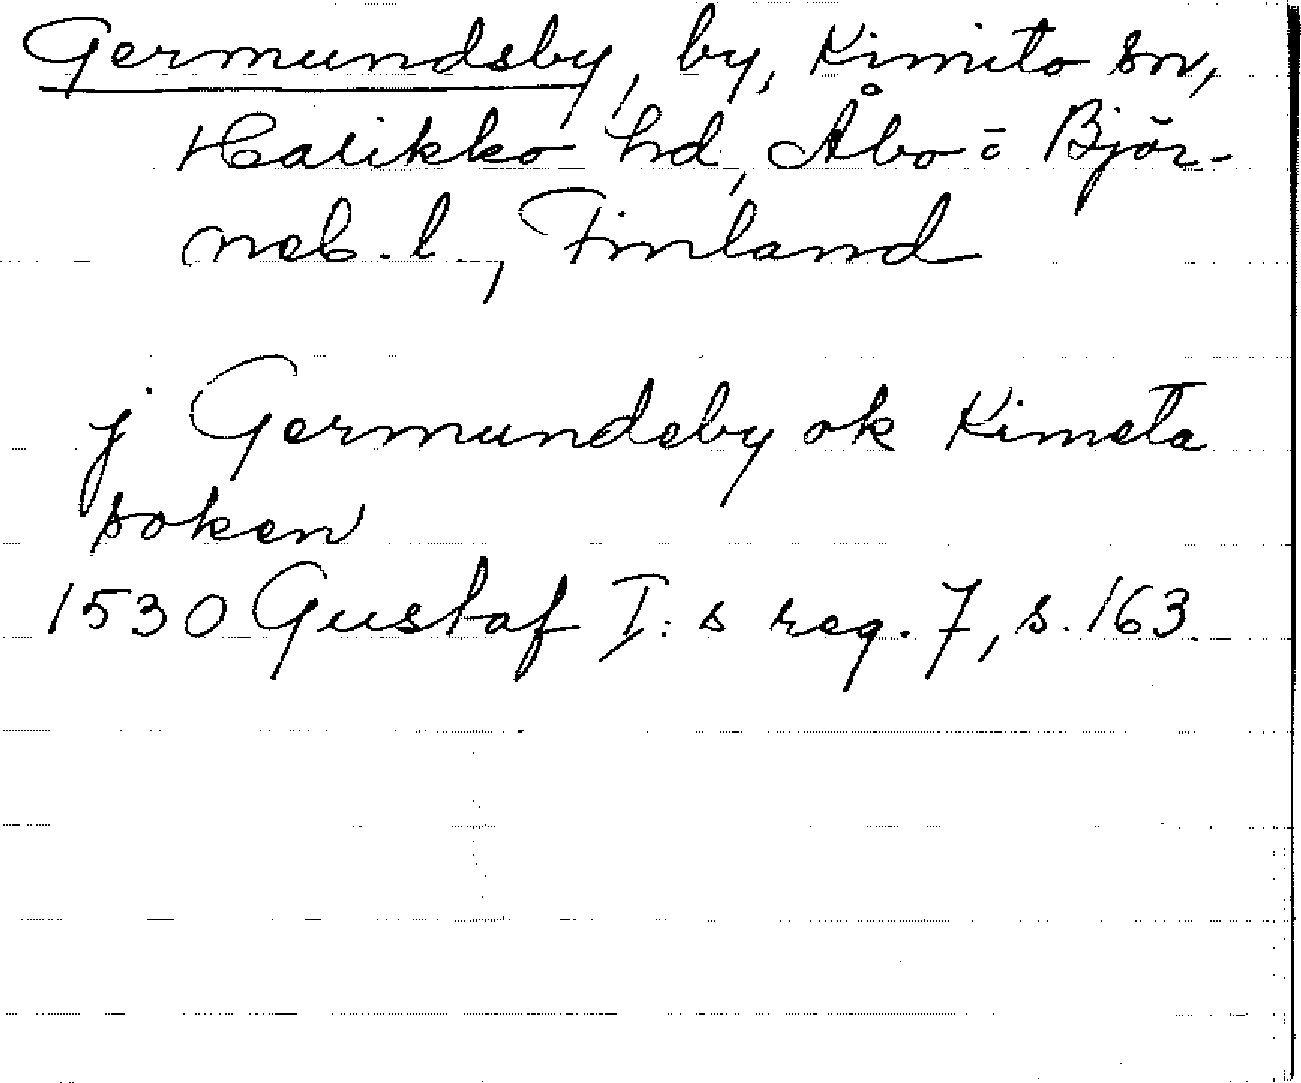 Germundsby, by, Kimito sn,
Halikko hd, Åbo ō Björ-
neb. l., Finland
j Germundeby ok Kimeta
soken
1530 Gustaf I:s reg. 7, s. 163